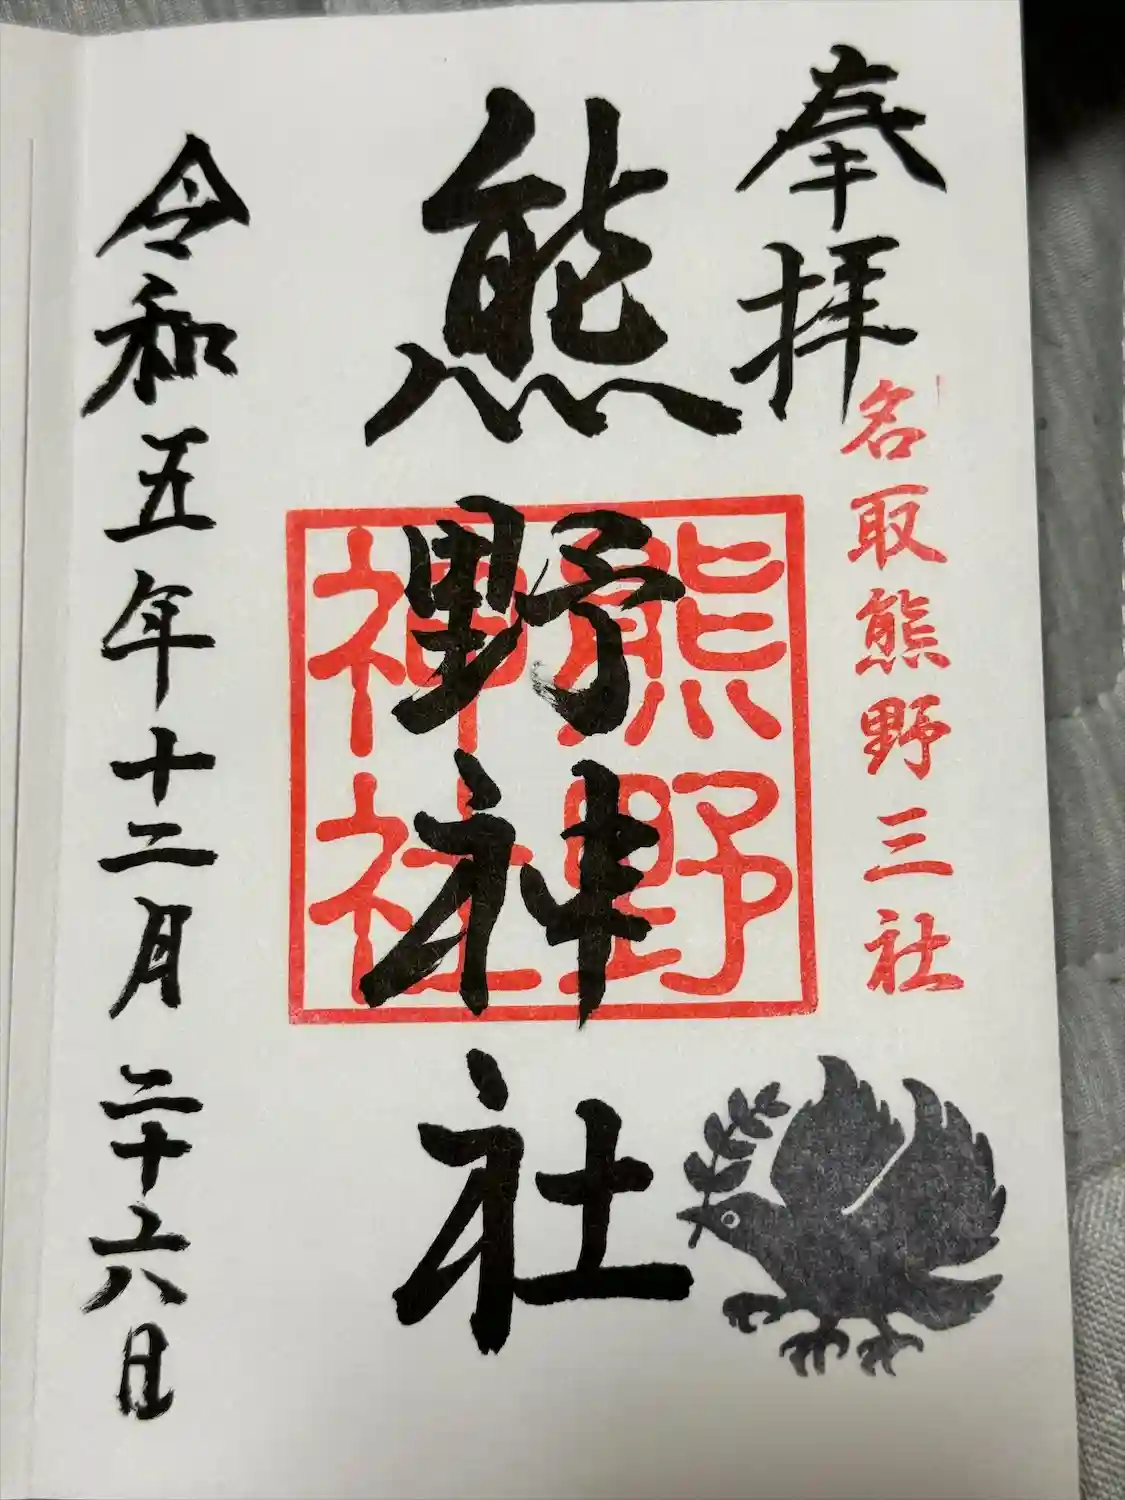 奉拝
名取熊野三社
熊野神社
熊野
神社
令和五年十二月二十六日